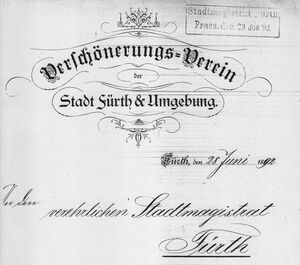 Stadtmagistrat Fürth
Praes. den 29. Jun 92.
Verschönerungs=Verein
der
Stadt Fürth & Umgebung.
Fürth, den 28 Juni 1892
An den
verehrlichen Stadtmagistrat
Fürth